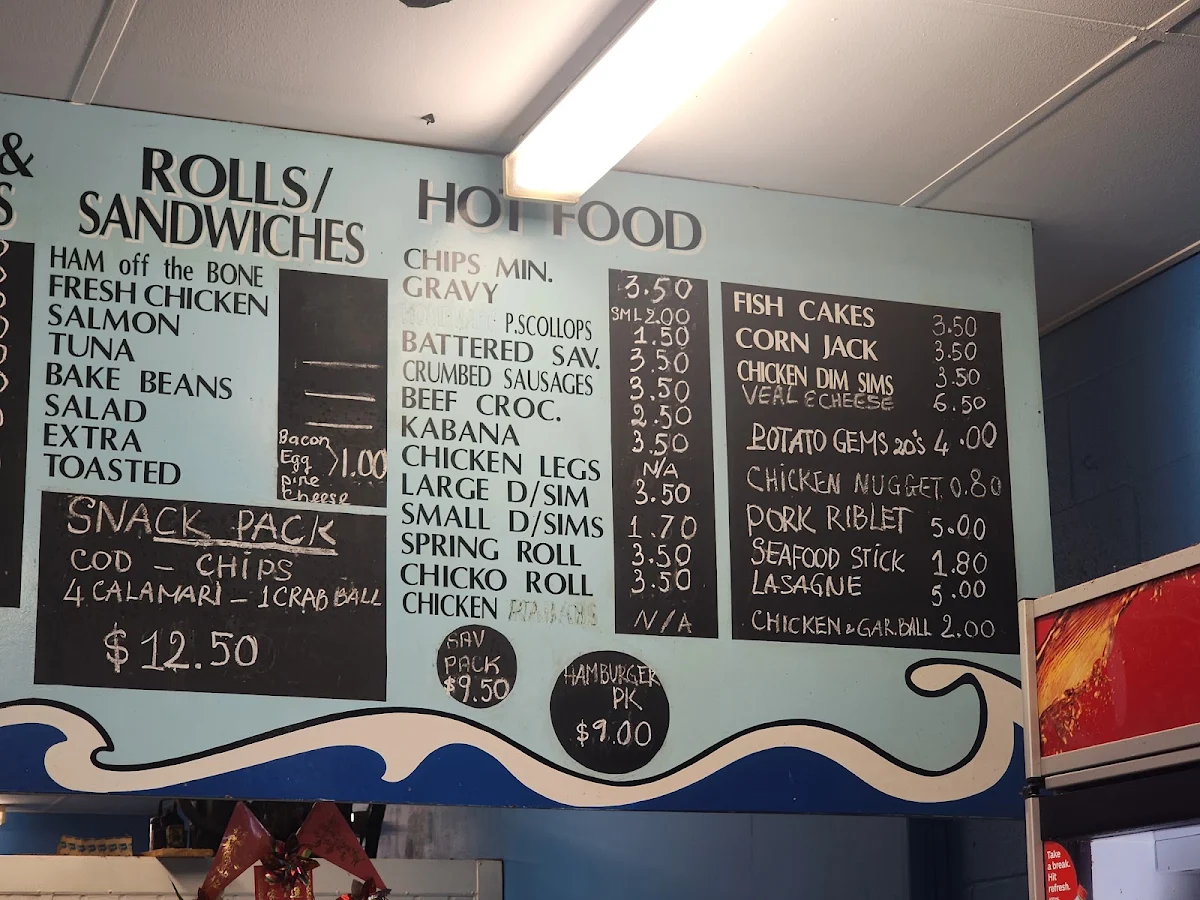 &
S
ROLLS/
SANDWICHES
HAM off the BONE
FRESH CHICKEN
SALMON
TUNA
BAKE BEANS
SALAD
EXTRA
TOASTED
Bacon
Egg 1.00
pine
Cheese
SNACK PACK
COD - CHIPS
4 CALAMARI - 1 CRAB BALL
$12.50
HOT FOOD
CHIPS MIN. 3.50
GRAVY SML 2.00
P.SCOLLOPS 1.50
BATTERED SAV. 3.50
CRUMBED SAUSAGES 3.50
BEEF CROC. 2.50
KABANA 3.50
CHICKEN LEGS N/A
LARGE D/SIM 3.50
SMALL D/SIMS 1.70
SPRING ROLL 3.50
CHICKO ROLL 3.50
CHICKEN N/A
SAV
PACK
$9.50
HAMBURGER
PK
$9.00
FISH CAKES 3.50
CORN JACK 3.50
CHICKEN DIM SIMS 3.50
VEAL & CHEESE 6.50
POTATO GEMS 20's 4.00
CHICKEN NUGGET 0.80
PORK RIBLET 5.00
SEAFOOD STICK 1.80
LASAGNE 5.00
CHICKEN & GAR.BALL 2.00
Take
a break.
Hit
refresh.